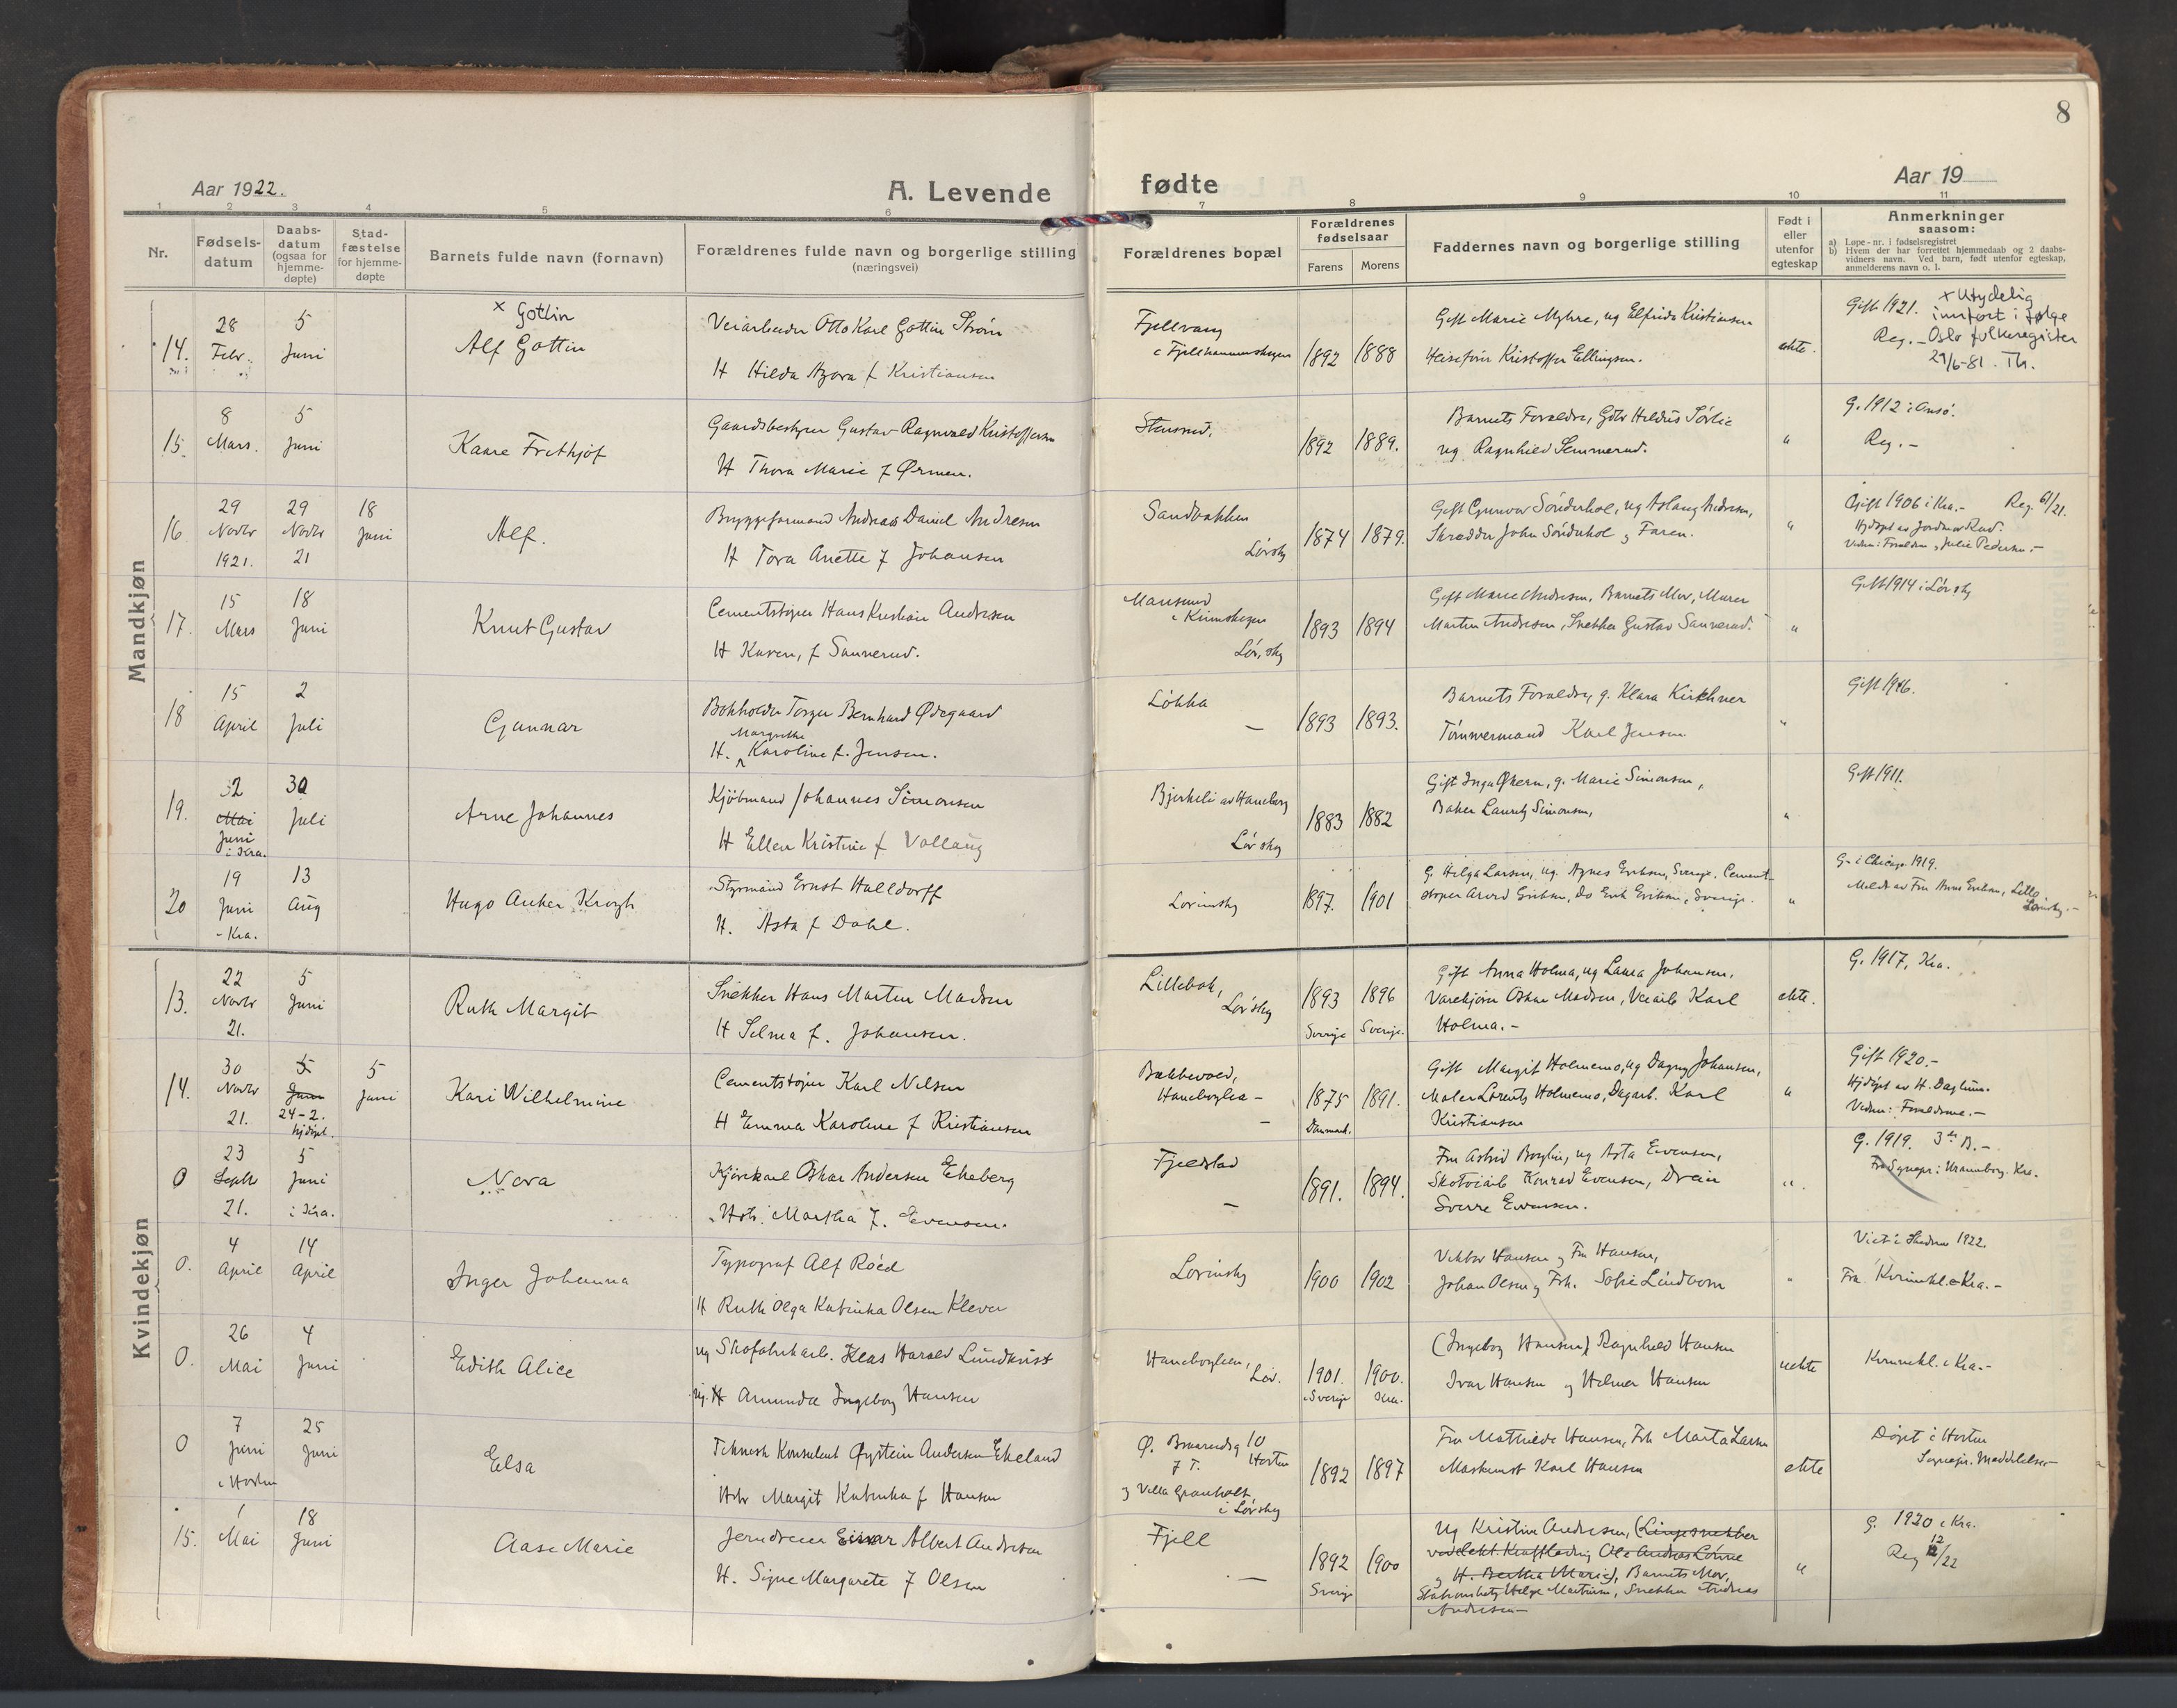 8
Aar 1922.
A. Levende
fødte
Aar 19
1 2 3 4 5 6 7 8 9 10 11
Nr.
Fødsels-
datum
Daabs-
datum
(ogsaa for
hjemme-
døpte)
Stad-
fæstelse
for hjemme-
døpte
Barnets fulde navn (fornavn)
Forældrenes fulde navn og borgerlige stilling
(næringsvei)
Forældrenes bopæl
Forældrenes
fødselsaar
Farens Morens
Faddernes navn og borgerlige stilling
Født i
eller
utenfor
egteskap
Anmerkninger
saasom:
a) Løpe-nr. i fødselsregistret
b) Hvem der har forrettet hjemmedaab og 2 daabs-
vidners navn. Ved barn, født utenfor egteskap,
anmelderens navn o. l.
Mandkjøn
14.
28
Febr.
5
Juni
x Gotlin
Alf Gottin
Veiarbeider Otto Karl Gottin Strøm
H Hilda Azora f Kristiansen
Fjellvang
i Fjellhammerskogen
1892 1888
Gift Marie Myhre, ug Elfrida Kristiansen
Heisefører Kristoffer Ellingsen.
ekte.
Gift 1921.
Reg. -
x Utydelig
innført i følge
Oslo folkeregister
29/6-81. Th.
15.
8
Mars.
5
Juni
Kaare Frithjof
Gaardsbestyrer Gustav Ragnvald Kristoffersen
H Thora Marie f Ørmen.
Stensrud.
1892 1889.
Barnets Forældre, Gdbr Hildus Sørlie
ug. Ragnhild Semmerud.
"
G. 1912 i Onsø.
Reg. -
16
29
Novbr
1921.
29
Novbr
21
18
Juni
Alf.
Bryggeformand Andreas Daniel Andresen
H Tora Anette f Johansen
Sandbakken
Lørsky
1874 1879.
Gift Gunvor Sönderhol, ug Aslaug Andresen,
Skrædder John Sönderhol og Faren.
"
Gift 1906 i Kra. - Reg. 61/21.
Hjdøpt av Jordmor Rud.
Vidner: Forældrene, Julie Pedersen. -
17.
15
Mars
18
Juni
Knut Gustav
Cementstøper Hans Kristian Andresen
H Karen, f Sannerud.
Lør, sky
1893 1894
Gift Marie Andresen, Barnets Mor, Murer
Martin Andresen, Snekker Gustav Sannerud.
"
Gift 1914 i Lørsky
18
15
April
2
Juli
Gunnar
Bokholder Torger Bernhard Ødegaard
Margrethe
H. Karoline f. Jensen.
Løkka
—
1893 1893.
Barnets Forældre, g. Klara Kirkhner
Tømmermand Karl Jensen
"
Gift 1916.
19.
2
Mai
Juni
i Kra.
30
Juli
Arne Johannes
Kjöbmand Johannes Simonsen
H Ellen Kristine f Vollaug
Bjerkeli av Haneborg
Lørsky
1883 1882
Gift Inga Økern, g. Marie Simonsen,
Baker Lauritz Simonsen,
"
Gift 1911.
20
19
Juni
- Kra.
13
Aug
Hugo Anker Krogh
Styrmand Ernst Halldorff
H. Asta f Dahl.
Lørensky
1897. 1901
G. Helga Larsen, ug. Agnes Eriksen, Sverige. Cement-
støper Arvid Eriksen, Do Erik Eriksen, Sverige.
"
G. i Chicago 1919.
Meldt av Fru Anna Eriksen, Lille
Lørensky. -
Kvindekjøn
13.
22
Novbr
21.
5
Juni
Ruth Margit
Snekker Hans Martin Madsen
H Selma f. Johansen.
Lillebak,
Lørsky
1893 1896
Sverige Sverige.
Gift Anna Holma, ug Laura Johansen,
Varekjører Oskar Madsen, Veiarb Karl
Holma. -
ekte.
G. 1917, Kra.
14.
30
Novbr
21.
5
Juni
24-2.
hjdøpt.
5
Juni
Kari Wilhelmine
Cementstøper Karl Nilsen
H Emma Karoline f Kristiansen
Bakkevold,
Haneborglia -
-
1875 1891.
Danmark.
Gift Margit Holmemo, ug Dagny Johansen,
Maler Lorentz Holmemo, Dagarb. Karl
Kristiansen
"
Gift 1920. -
Hjdøpt av H. Daglum.
Vidner: Forældrene. -
0
23
Septb
21.
5
Juni
i Kra.
Nora
Kjørekarl Oskar Andersen Ekeberg
Hstr. Martha f. Evensen.
Fjeldstad
—
1891. 1894.
Fru Astrid Borglin, ug Asta Evensen,
Skotøiarb Konrad Evensen, Dreier
Sverre Evensen.
"
G. 1919. 3die B. -
Fra Sognepr. i Uranienborg. Kra.
0.
4
April
14
April
Inger Johanna
Typograf Alf Röed
H Ruth Olga Katinka Olsen Klever
Lørensky
1900 1902
Viktor Hansen og Fru Hansen,
Johan Olsen og Frk. Sofie Lindbom
"
Viet i 1922.
Fra Kvinnekl. i Kra. -
0.
26
Mai
4
Juni
Edith Alice
ug Skofabrikarb. Klas Harald Lundkvist
ug. H Amunda Ingeborg Hansen
Haneborglien,
Lør.
1901. 1900.
i Sverige Kra.
(Ingeborg Hansen) Ragnhild Hansen
Ivar Hansen og Hilmer Hansen
uekte
Kvinnekl. i Kra. -
0
7
Juni
i Horten
25
Juni
Elsa
Teknisk Konsulent Øystein Andersen Ekeland
Hstr Margit Katinka f Hansen
Ø. Braaresdg 10
7 T. Horten
og Villa Granholt
i Lørsky
1892 1897
Fru Mathilde Hansen, Frk Marta Larsen
Maskinist Karl Hansen
ekte
Døpt i Horten
Sognepr. Meddelelse
15.
1
Mai
18
Juni
Aase Marie
Jerndreier Einar Albert Andresen
H. Signe Margarete f Olsen
Fjell
—
1892 1900
Sverige
Ug Kristine Andresen, (Linjesnekker
ved elekt. Kraftledning Ole Andreas Lönne
og H. Bertha Marie), Barnets Mor,
Stationsbetj Helge Martinsen, Snekker Andreas
Andresen
"
G. 1920 i Kra.
Reg 12/22